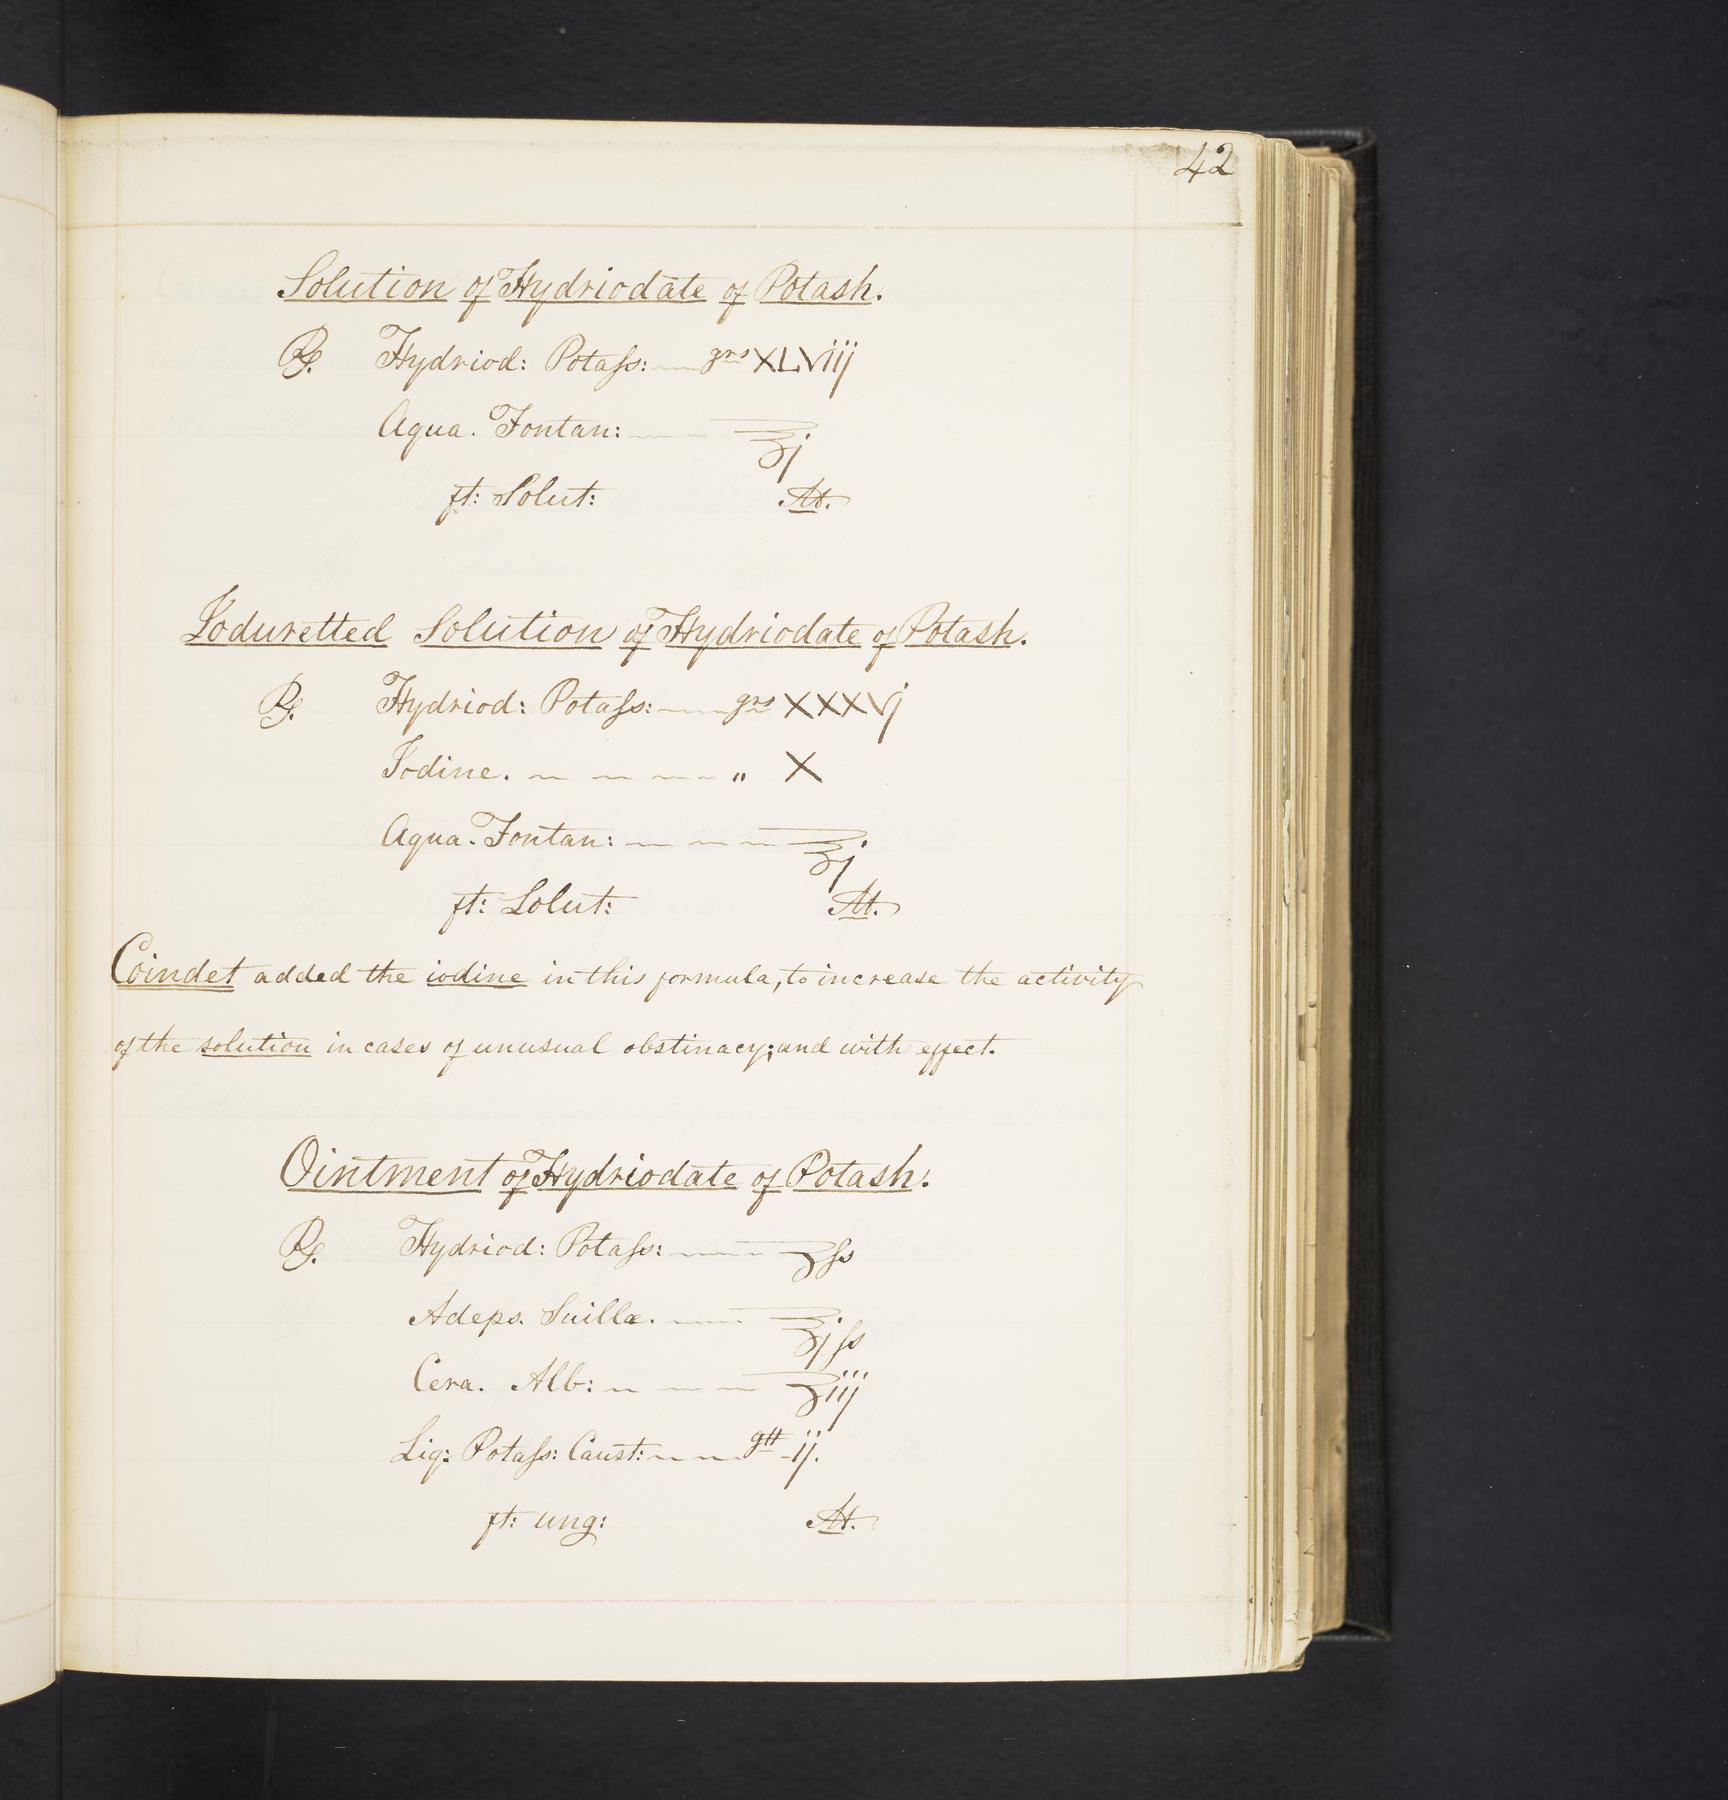 42
Solution of Hydriodate of Potash.
℞. Hydriod: Potaſs: grs XLViij
Aqua. Fontan: ℥j
ft: Solut: M.
Ioduretted Solution of Hydriodate of Potash.
℞. Hydriod: Potaſs: grs XXXVj
Iodine. " X
Aqua. Fontan: ℥j
ft: Solut: M.
Coindet added the iodine in this formula, to increase the activity
of the solution in cases of unusual obstinacy; and with effect.
Ointment of Hydriodate of Potash.
℞. Hydriod: Potaſs: ʒſs
Adeps. Suillæ. ℥jſs
Cera. Alb: ʒiij
Liq: Potaſs: Caust: gtt ij.
ft: ung: M.